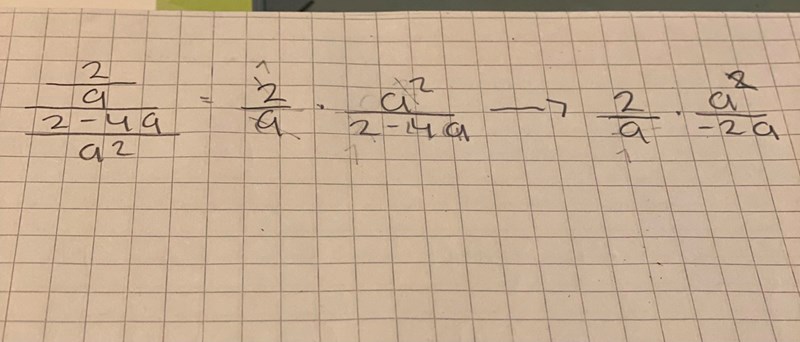 2/a / (2-4a)/a² = 2/a · a²/(2-4a) → 2/a · a²/(-2a)